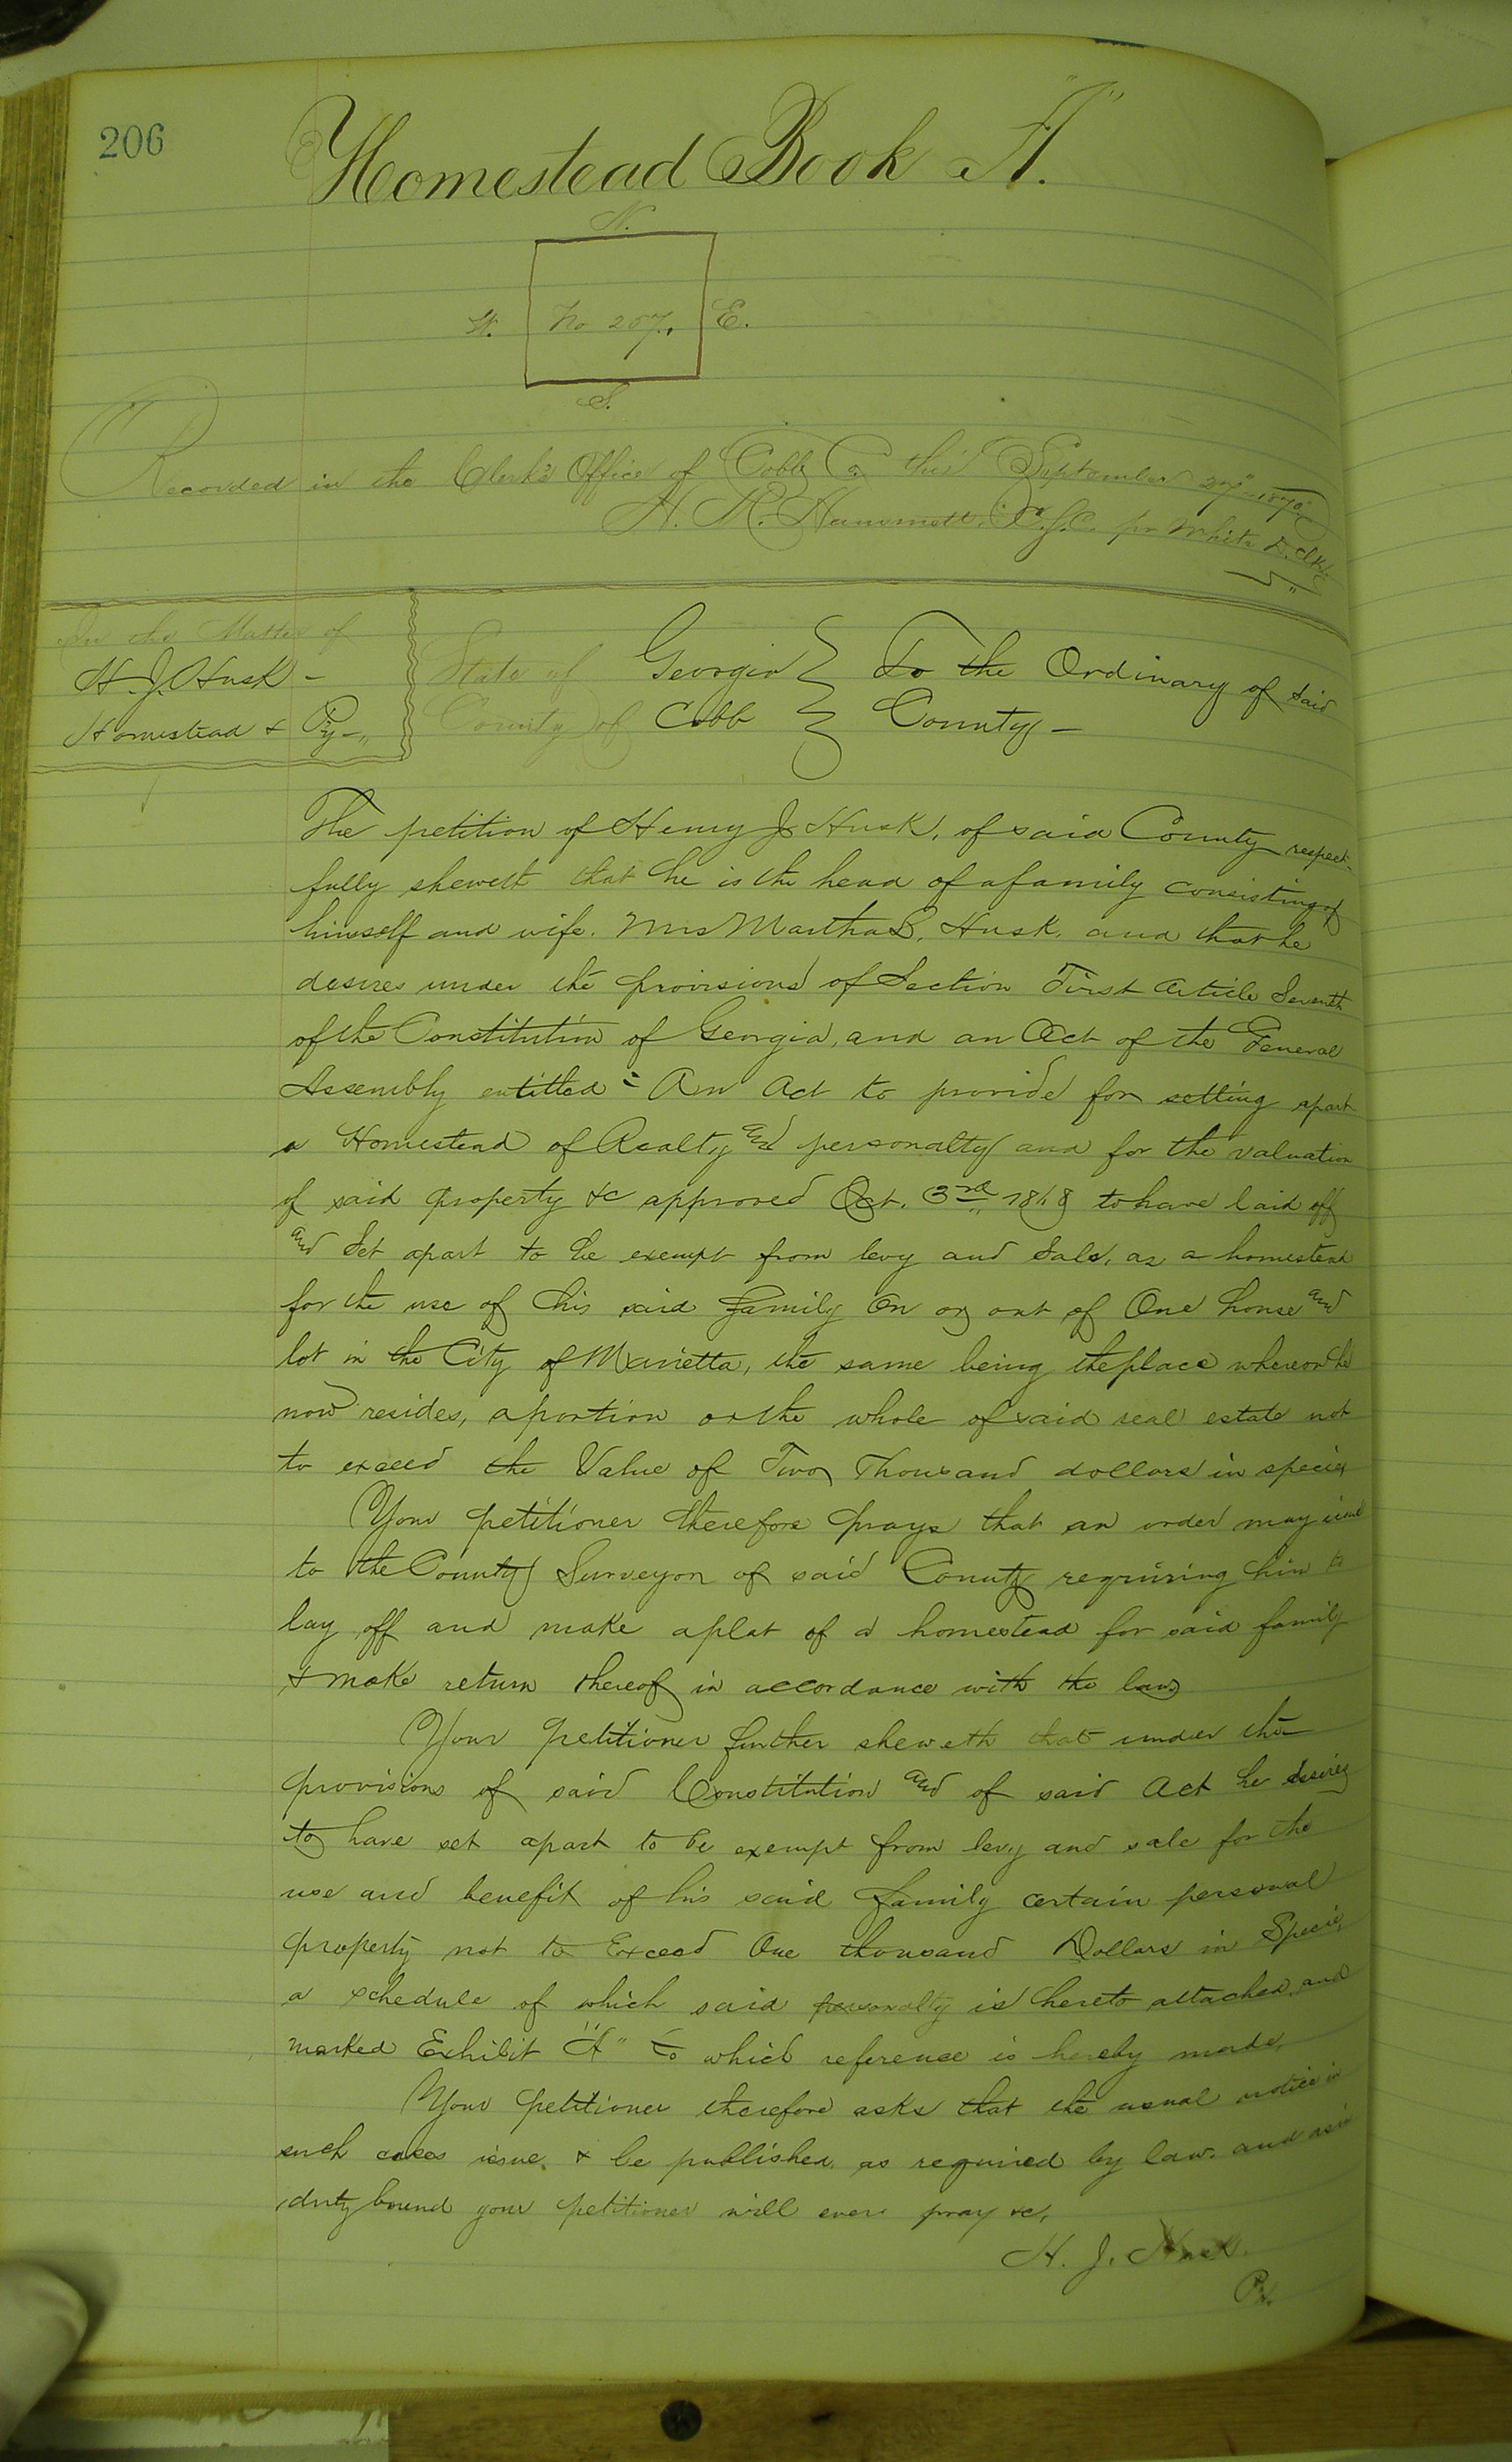 206
Homestead Book "A".
N.
W. No 257., E.
S.
Recorded in the Clerk's Office of Cobb Co this September 27" 1870
H. M. Hammett, C.S.C. per White D. Clk.
In the Matter of
H. J. Husk -
Homestead & Py -,,
State of Georgia } To the Ordinary of said
County of Cobb } County -
The petition of Henry J. Husk, of said County respect-
fully sheweth that he is the head of a family consisting of
himself and wife. Mrs Martha S. Husk, and that he
desires under the provisions of Section First Article Seventh
of the Constitution of Georgia, and an Act of the General
Assembly entitled = An Act to provide for setting apart
a Homestead of Realty and personalty and for the valuation
of said property &c approved Oct. 3rd 1868 to have laid off
and Set apart to be exempt from levy and Sale, as a homestead
for the use of his said family On or out of One house and
lot in the City of Marietta, the same being the place whereon he
now resides, a portion or the whole of said real estate not
to exceed the Value of Two Thousand dollars in specie
Your petitioner therefore prays that an order may issue
to the County Surveyor of said County requiring him to
lay off and make a plat of a homestead for said family
& make return thereof in accordance with the law
Your petitioner further sheweth that under the
provisions of said Constitution and of said Act he desires
to have set apart to be exempt from levy and sale for the
use and benefit of his said family certain personal
property not to Exceed One thousand Dollars in Specie,
a schedule of which said personalty is hereto attached and
marked Exhibit "A" to which reference is hereby made,
Your petitioner therefore asks that the usual notice in
such cases issue & be published, as required by law. and as in
duty bound your petitioner will ever pray &c,
H. J. Husk.